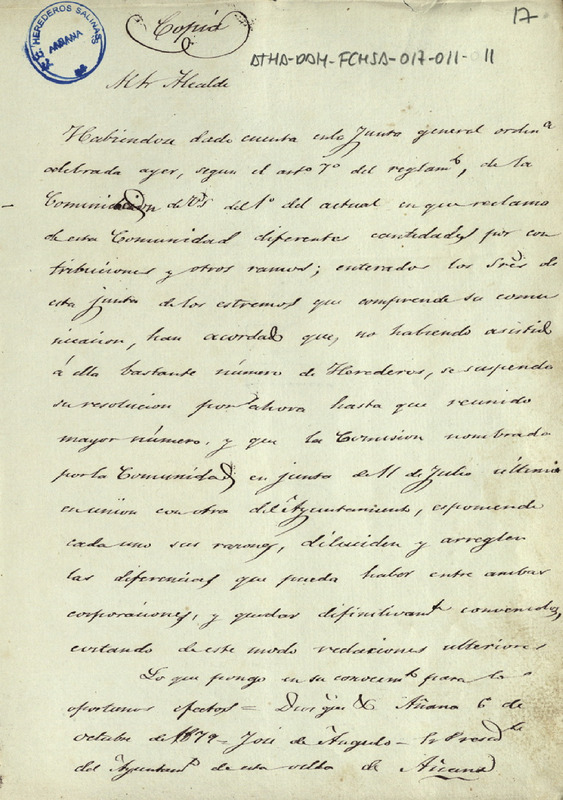 17
HEREDEROS SALINAS
AÑANA
Copia
ATHA-DAH-FCHSA-017-011-011
Sr Alcalde
Habiendose dado cuenta en la Junta general ordinª
celebrada ayer, segun el artº 7º del reglamtº, de la
Comunicacion de Vs del 1º del actual en que reclama
de esta Comunidad diferentes cantidades por con
tribuciones y otros ramos; enterados los Sres de
esta junta de los estremos que comprende su comu
nicacion, han acordado que, no habiendo asistido
á ella bastante número de Herederos, se suspenda
su resolucion por ahora hasta que reunido
mayor número, y que la Comision nombrada
por la Comunidad en junta de 11 de Julio último
en union con otra del Ayuntamiento, esponiendo
cada uno sus razones, diluciden y arreglen
las diferencias que pueda haber entre ambas
corporaciones, y quedar difinitivamte convenidos,
evitando de este modo reclaciones ulteriores
Lo que pongo en su conocimtº para los
oportunos efectos = Dios gue &. Añana 6 de
octubre de 1879 = José de Angulo = Sr Presidte
del Ayuntamtº de esta villa de Añana